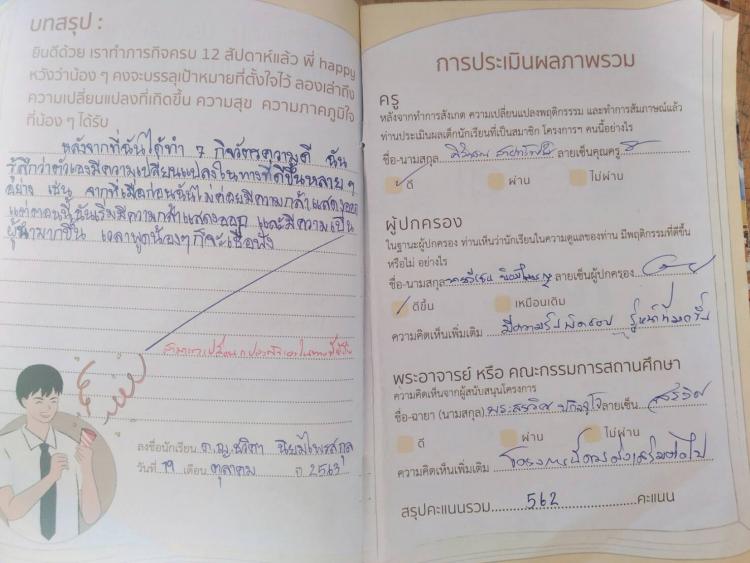 บทสรุป :
ยินดีด้วย เราทำภารกิจครบ 12 สัปดาห์แล้ว พี่ happy
หวังว่าน้อง ๆ คงจะบรรลุเป้าหมายที่ตั้งใจไว้ ลองเล่าถึง
ความเปลี่ยนแปลงที่เกิดขึ้น ความสุข ความภาคภูมิใจ
ที่น้อง ๆ ได้รับ
หลังจากที่ฉันได้ทำ 7 กิจวัตรความดี ฉัน
รู้สึกว่าตัวเองมีความเปลี่ยนแปลงในทางที่ดีขึ้นหลายๆ
อย่าง เช่น จากที่เมื่อก่อนฉันไม่ค่อยมีความกล้าแสดงออก
แต่ตอนนี้ฉันเริ่มมีความกล้าแสดงออก และมีความเป็น
ผู้นำมากขึ้น เวลาพูดน้องๆก็จะเชื่อฟัง
ลงชื่อนักเรียน ด.ญ.ชวิศา นิยมไพรสกุล
วันที่ 19 เดือน ตุลาคม ปี 2563
การประเมินผลภาพรวม
ครู
หลังจากทำการสังเกต ความเปลี่ยนแปลงพฤติกรรรม และทำการสัมภาษณ์แล้ว
ท่านประเมินผลเด็กนักเรียนที่เป็นสมาชิก โครงการฯ คนนี้อย่างไร
ชื่อ-นามสกุล ลายเซ็นคุณครู
ดี ผ่าน ไม่ผ่าน
ผู้ปกครอง
ในฐานะผู้ปกครอง ท่านเห็นว่านักเรียนในความดูแลของท่าน มีพฤติกรรมที่ดีขึ้น
หรือไม่ อย่างไร
ชื่อ-นามสกุล ลายเซ็นผู้ปกครอง
ดีขึ้น เหมือนเดิม
ความคิดเห็นเพิ่มเติม มีความรับผิดชอบ รู้หน้าที่มากขึ้น
พระอาจารย์ หรือ คณะกรรมการสถานศึกษา
ความคิดเห็นจากผู้สนับสนุนโครงการ
ชื่อ-ฉายา (นามสกุล) ลายเซ็น
ดี ผ่าน ไม่ผ่าน
ความคิดเห็นเพิ่มเติม
สรุปคะแนนรวม 562 คะแนน